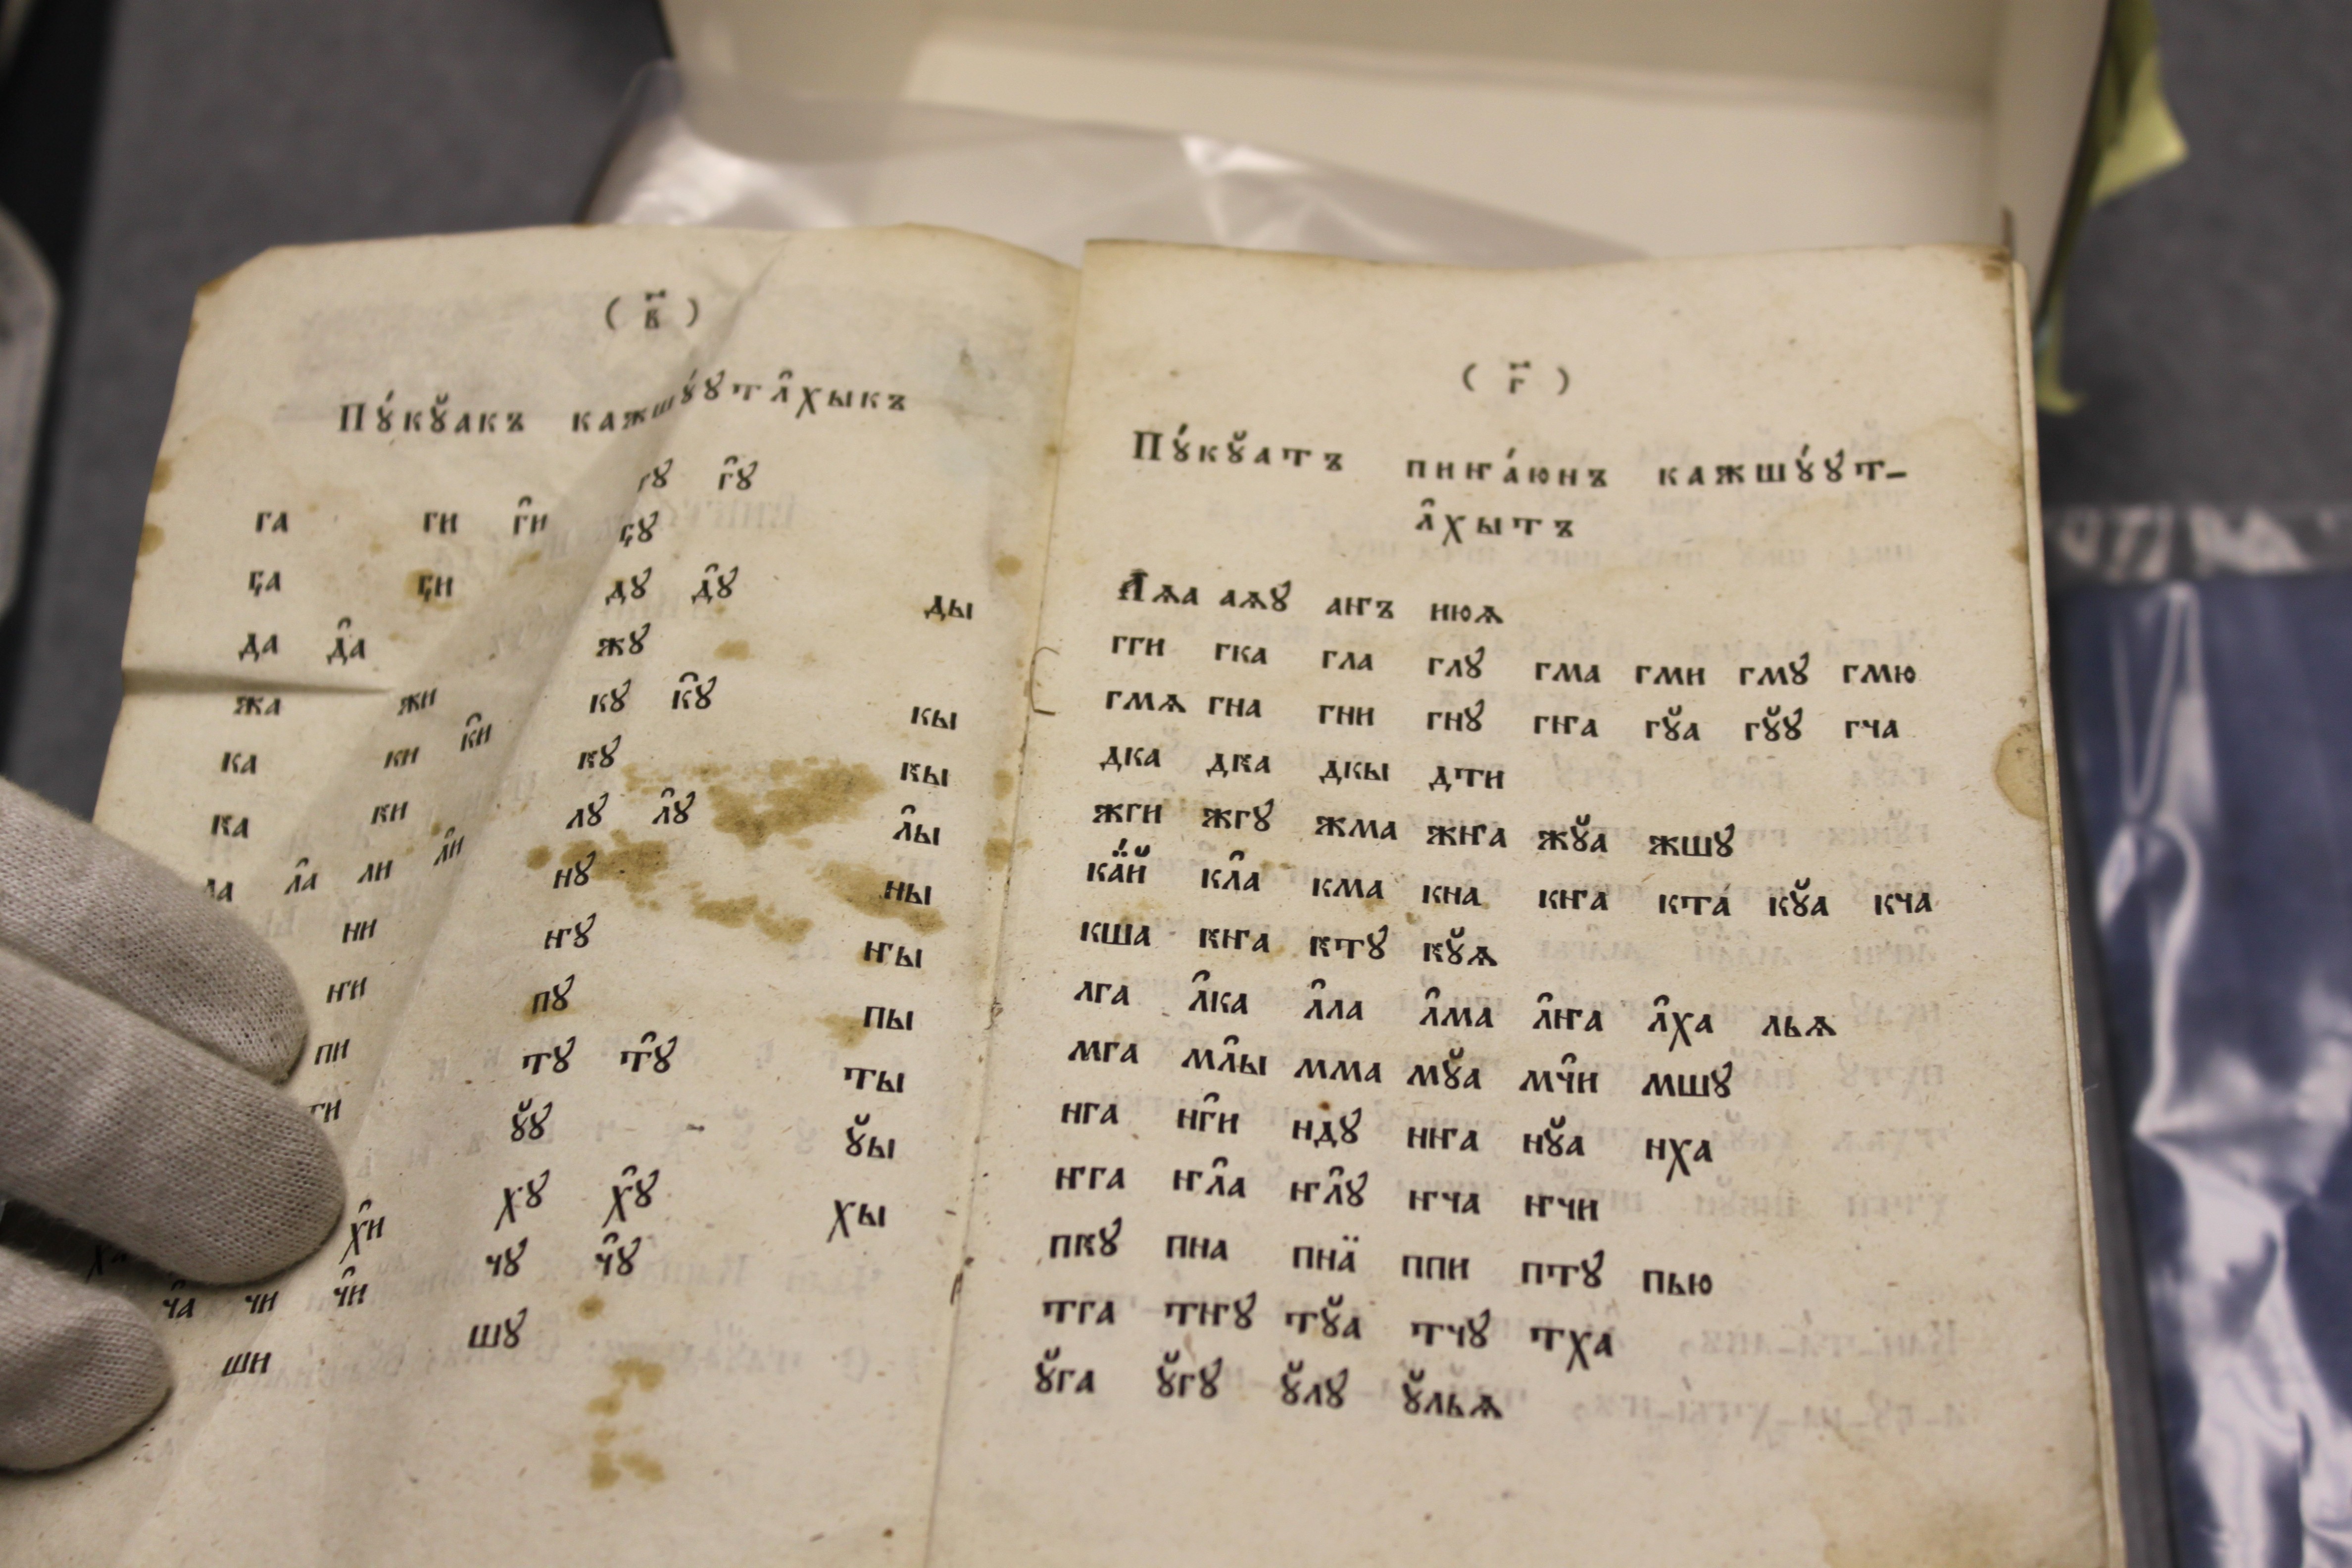 ( в҃ )
Пꙋ́кꙋ̆акъ кажшꙋ́ꙋтл̑хыкъ
га ги г̑и гꙋ г̑ꙋ
ӷа ӷи ӷꙋ
да д̑а дꙋ д̑ꙋ ды
жа жи жꙋ
ка ки к̑и кꙋ к̑ꙋ кы
ԟа ԟи ԟꙋ ԟы
ла л̑а ли л̑и лꙋ л̑ꙋ л̑ы
ни нꙋ ны
ҥи ҥꙋ ҥы
пи пꙋ пы
ти тꙋ т̑ꙋ ты
ꙋ̆ꙋ ꙋ̆ы
х̑и хꙋ х̑ꙋ хы
ч̑а чи ч̑и чꙋ ч̑ꙋ
ши шꙋ
( г҃ )
Пꙋ́кꙋ̆атъ пиҥа́юнъ кажшꙋ́ꙋт-
л̑хытъ
Аѧа аѧꙋ аҥъ июѧ
гги гка гла глꙋ гма гми гмꙋ гмю
гмѧ гна гни гнꙋ гҥа гꙋ̆а гꙋ̆ꙋ гча
дка дԟа дкы дти
жги жгꙋ жма жҥа жꙋ̆а жшꙋ
кӓ́й кл̑а кма кна кҥа кта́ кꙋ̆а кча
кша ԟҥа ԟтꙋ ԟꙋ̆ѧ
лга л̑ка л̑ла л̑ма л̑ҥа л̑ха льѧ
мга мл̑ы мма мꙋ̆а мч̑и мшꙋ
нга нг̑и ндꙋ нҥа нꙋ̆а нха
ҥга ҥл̑а ҥл̑ꙋ ҥча ҥчи
пԟꙋ пна пнӓ ппи птꙋ пью
тга тҥꙋ тꙋ̆а тчꙋ тха
ꙋ̆га ꙋ̆гꙋ ꙋ̆лꙋ ꙋ̆льѧ